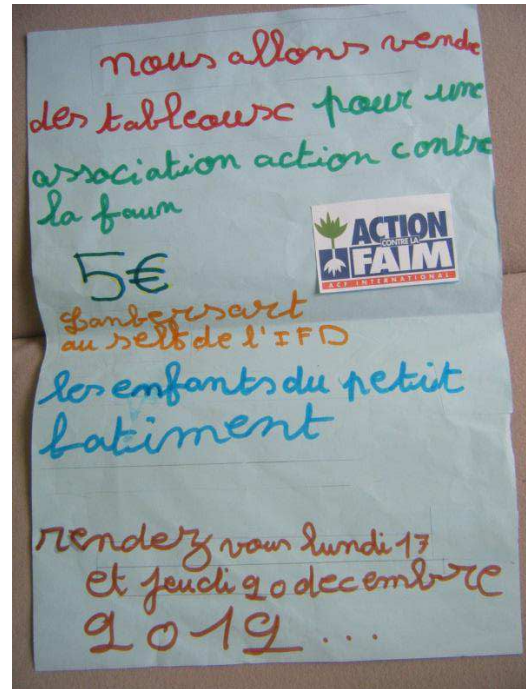 nous allons vendre
des tableaux pour une
association action contre
la faum
ACTION
CONTRE LA
FAIM
ACF INTERNATIONAL
5€
Lanbersart
au self de l'IFD
les enfants du petit
batiment
rendez vous lundi 17
et jeudi 20 decembre
2012...